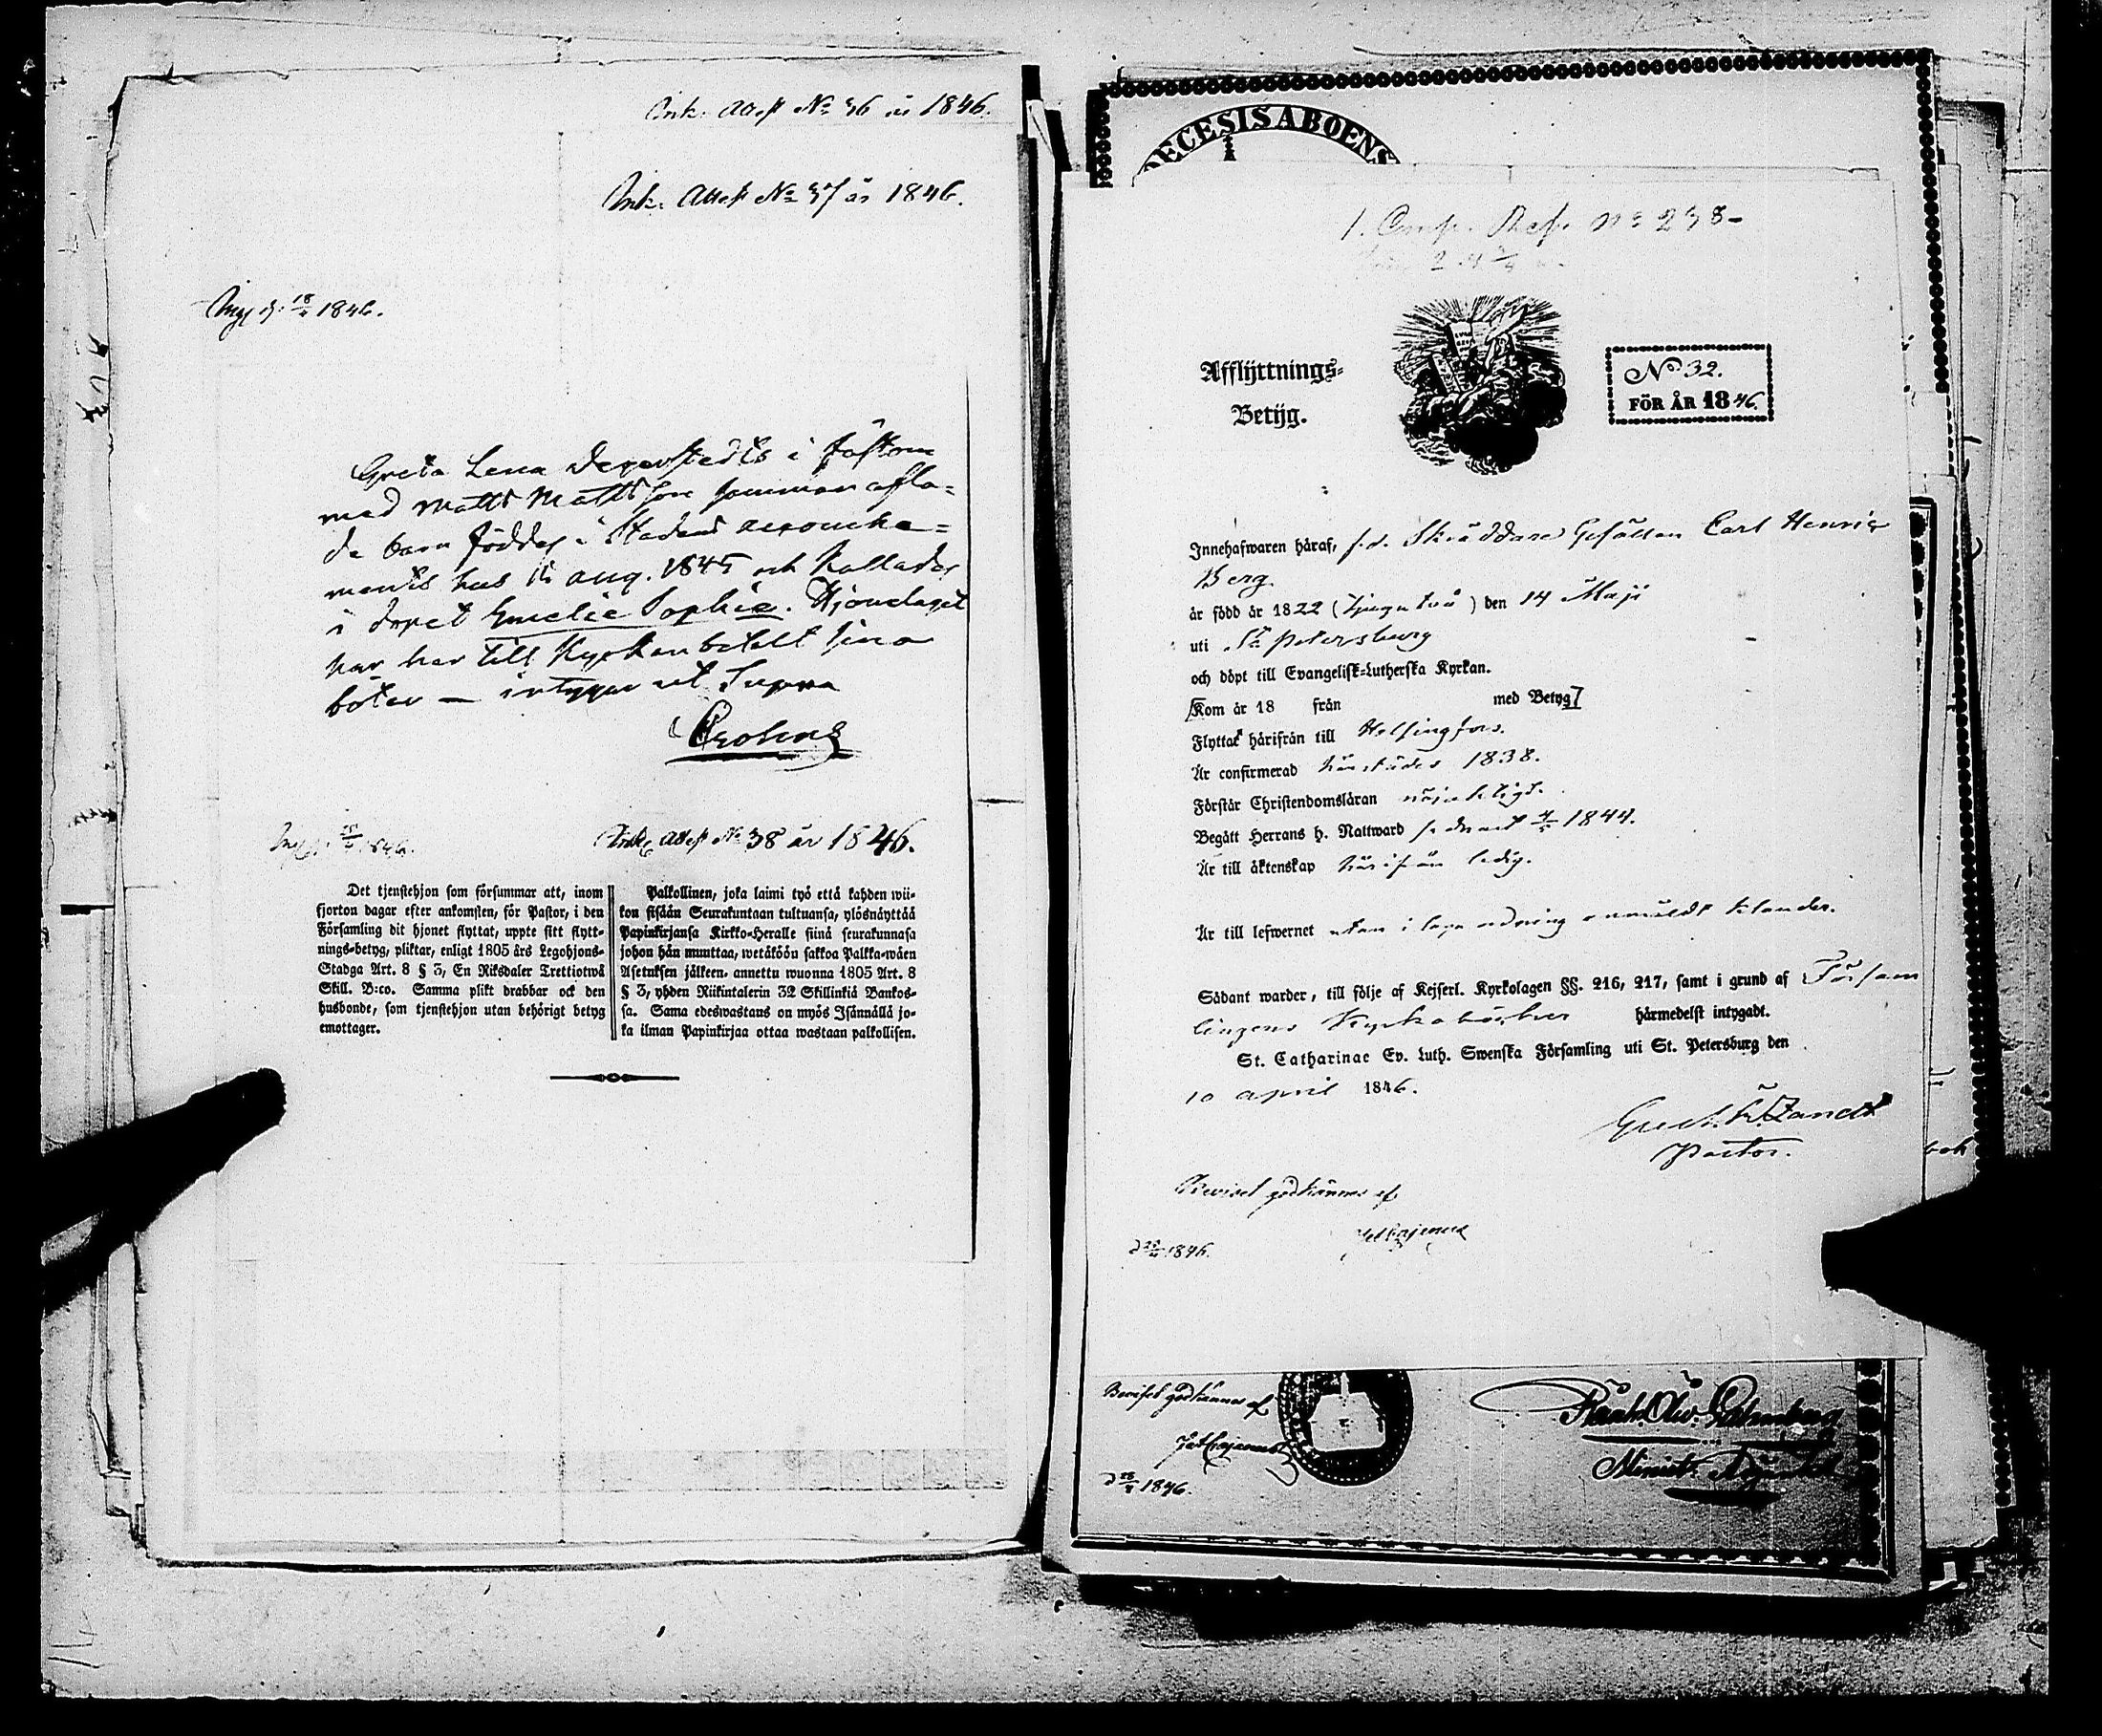 Ink. Attest No 36 år 1846.
Ink. Attest No 37 år 1846.
1846.
Greta Lena i
med Matts Mattsson sammanafla-
de barn föddes i Stadens accouche-
ments hus aug. 1845 och kallades
i dopet Emelie Sophia. Hjonelaget
har här till Kyrkan betalt sina
böter — intygar ut Supra
1846.
Ink. Attest No 38 år 1846.
Det tjenstehjon som försummar att, inom
fjorton dagar efter ankomsten, för Pastor, i den
Församling dit hjonet flyttat, uppte sitt flytt-
nings-betyg, pliktar, enligt 1805 års Legohjons-
Stadga Art. 8 § 3, En Riksdaler Trettiotwå
Skill. B:co. Samma plikt drabbar ock den
husbonde, som tjenstehjon utan behörigt betyg
emottager.
Palkollinen, joka laimi työ että kahden wii-
kon sisään Seurakuntaan tultuansa, ylösnäyttää
Papinkirjansa Kirkko-Heralle siinä seurakunnasa
johon hän muuttaa, wetäköön sakkoa Palkka-wäen
Asetuksen jälkeen, annettu wuonna 1805 Art. 8
§ 3, yhden Riikintalerin 32 Skillinkiä Bankos-
sa. Sama edeswastaus on myös Isännällä jo-
ka ilman Papinkirjaa ottaa wastaan palkollisen.
DECESIS ABOENS
No 238
Afflyttnings-
Betyg.
No 32.
FÖR ÅR 1846.
Innehafwaren häraf, f.d. Skräddare Gesällen Carl Henric
Berg
är född år 1822 (tjugutvå) den 14 Maji
uti St. Petersburg
och döpt till Evangelisk-Lutherska Kyrkan.
Kom år 18 från med Betyg
Flyttar härifrån till Helsingfors.
Är confirmerad härstädes 1838.
Förstår Christendomsläran nöjaktigt.
Begått Herrans h. Nattward senast 1844.
Är till äktenskap härifrån ledig.
Är till lefwernet utan i laga ordning anmäldt klander.
Sådant warder, till följe af Kejserl. Kyrkolagen §§. 216, 217, samt i grund af Försam
lingens Kyrkoböcker härmedelst intygadt.
St. Catharinae Ev. Luth. Swenska Församling uti St. Petersburg den
10 april 1846.
Pastor.
Beviset godkännes af
1846.
Beviset godkännes af
1846.